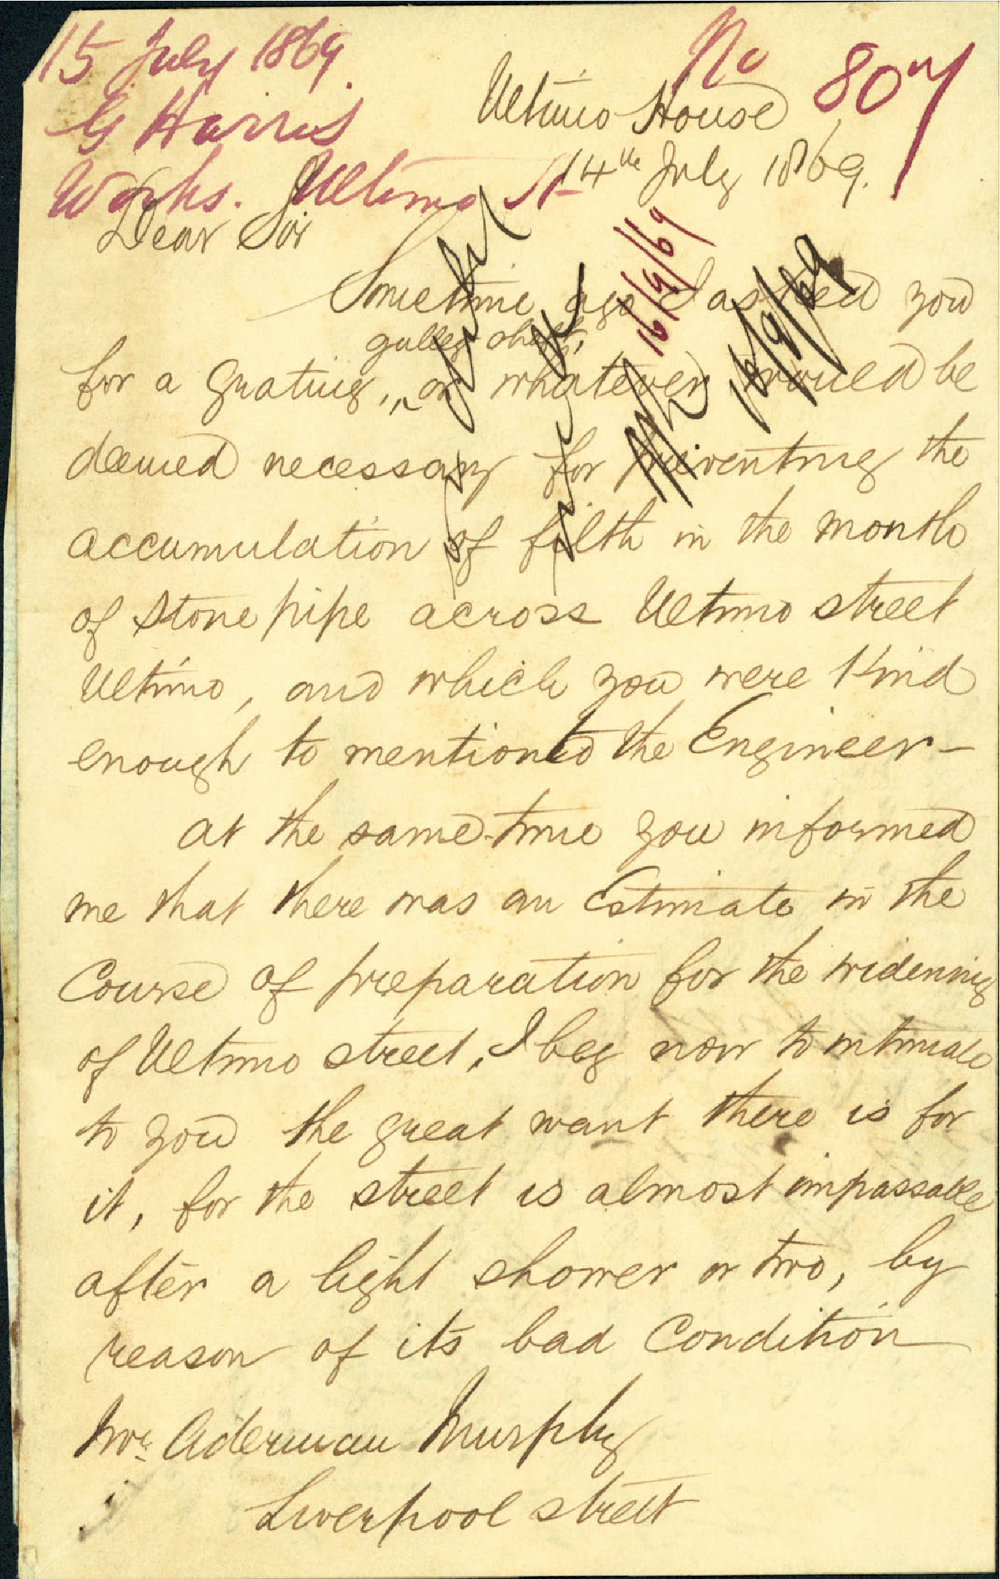 15 July 1869.
No 807
G Harris
Works. Ultimo St
Ultimo House
14th July 1869.
Dear Sir
Sometime ago I asked you
gulley
for a grating, or whatever would be
deemed necessary for preventing the
accumulation of filth in the month
of Stone pipe across Ultimo street
Ultimo, and which you were Kind
enough to mention to the Engineer –
at the same time you informed
me that there was an Estimate in the
Course of preparation for the widening
of Ultimo street, I beg now to intimate
to you the great want there is for
it, for the street is almost impassable
after a light shower or two, by
reason of its bad Condition
Mr. Aderman Murphy
Liverpool street
16/9/69
16/9/69